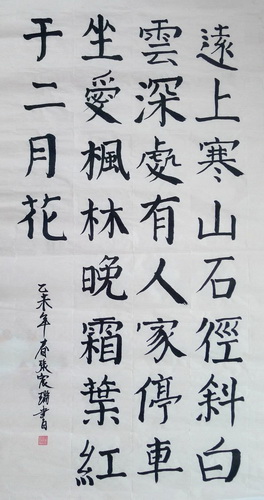 遠上寒山石徑斜白
雲深處有人家停車
坐愛楓林晚霜葉紅
于二月花
乙未年春張宸瑚書